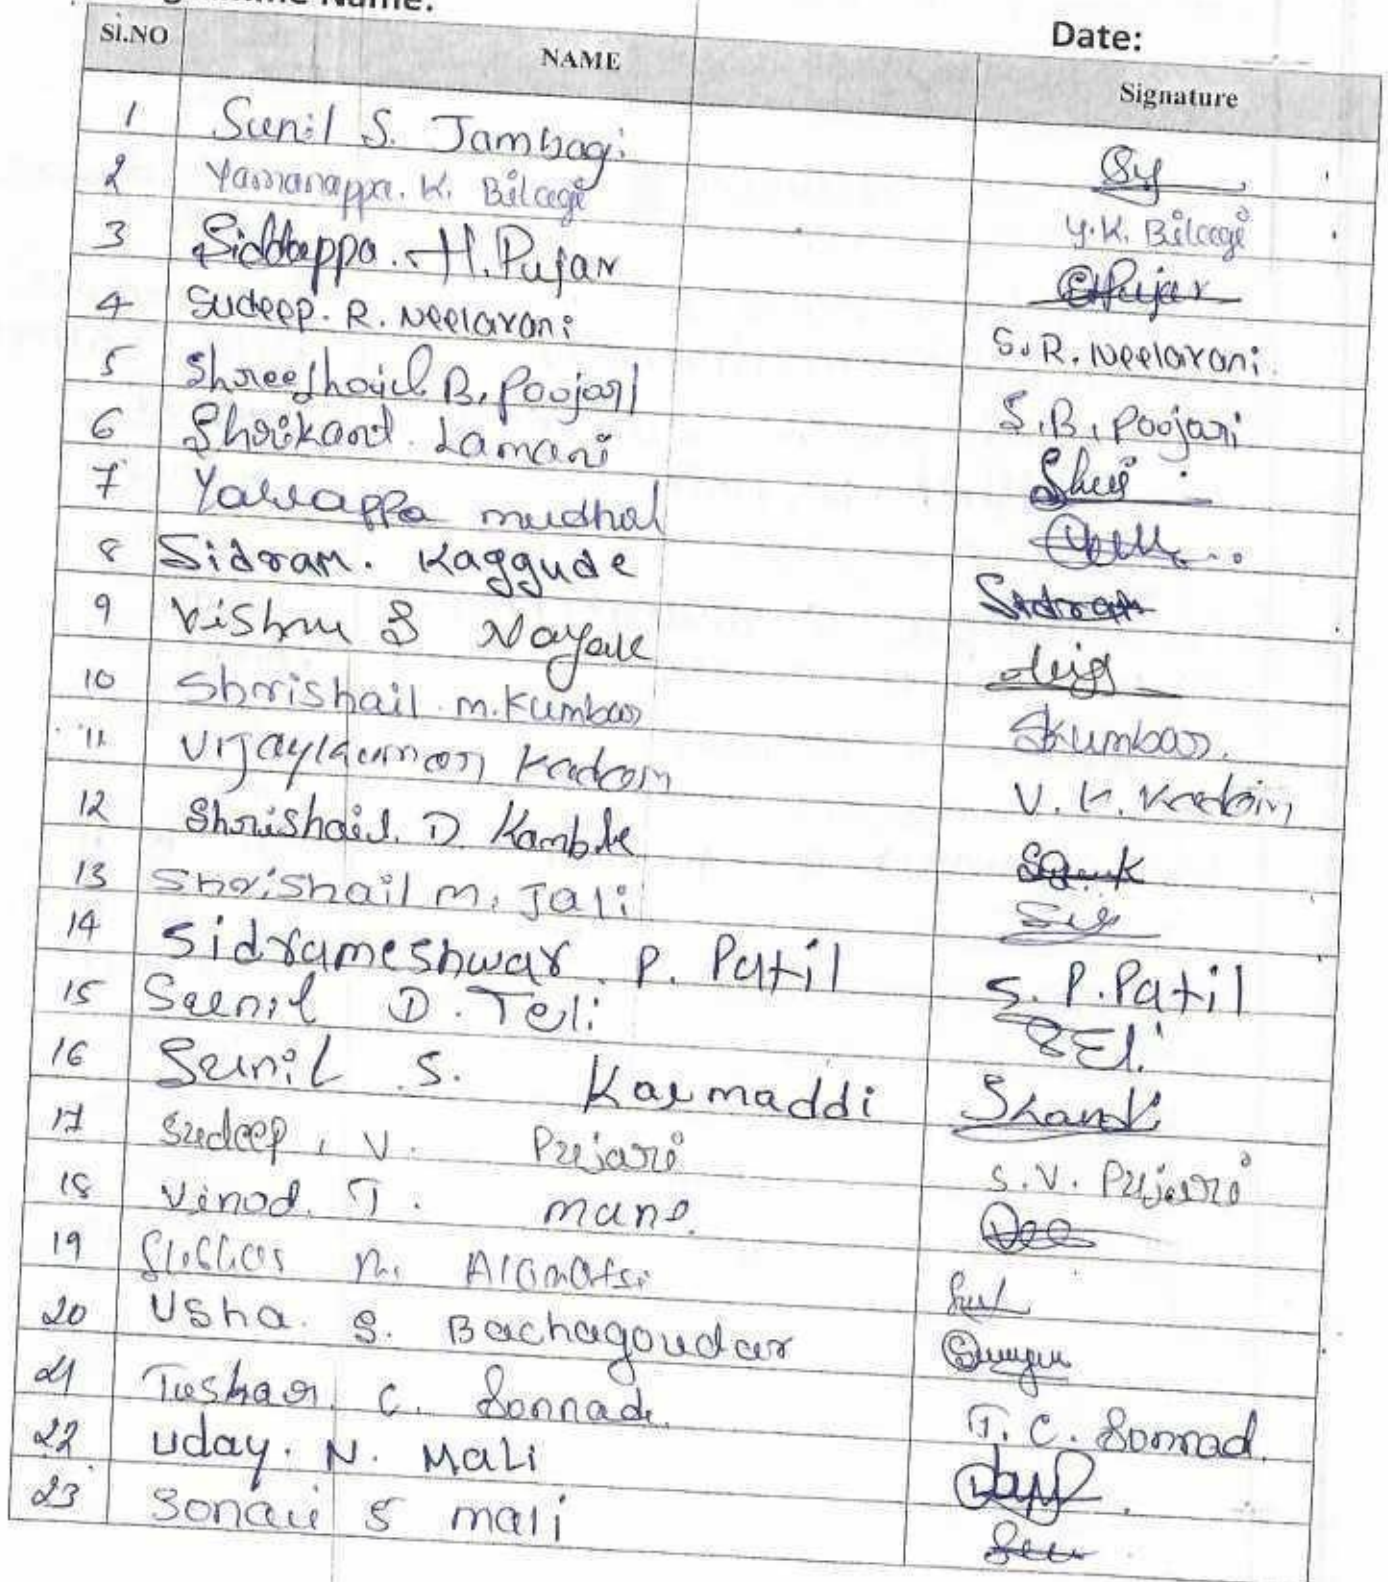 Name:
Date:
Si.NO NAME Signature
1 Sunil S. Jambagi
2 Yamanappa. K. Bilagi Y.K. Bilagi
3 Siddappa. H. Pujar SHPujar
4 Sudeep. R. Neelavani S. R. Neelavani.
5 Shreeshail B. Poojari S. B. Poojari
6 Shrikant Lamani
7 Yallappa mudhol
8 Sidram. Kaggude Sidram
9 Vishnu S Nayak
10 Shrishail m. Kumbar Skumbar.
11 Vijaykumar Kadam V. K. Kadam
12 Shrishail D Kamble
13 Shrishail m. Jali
14 Sidrameshwar P. Patil S. P. Patil
15 Sunil D. Teli
16 Sunil S. Karmaddi
17 Sudeep. V. Pujari S.V. Pujari
18 Vinod. T. mane
19 m.
20 Usha. S. Bachagoudar
21 Tushar C. Sonnad T. C. Sonnad.
22 Uday. N. Mali
23 Sonali S mali